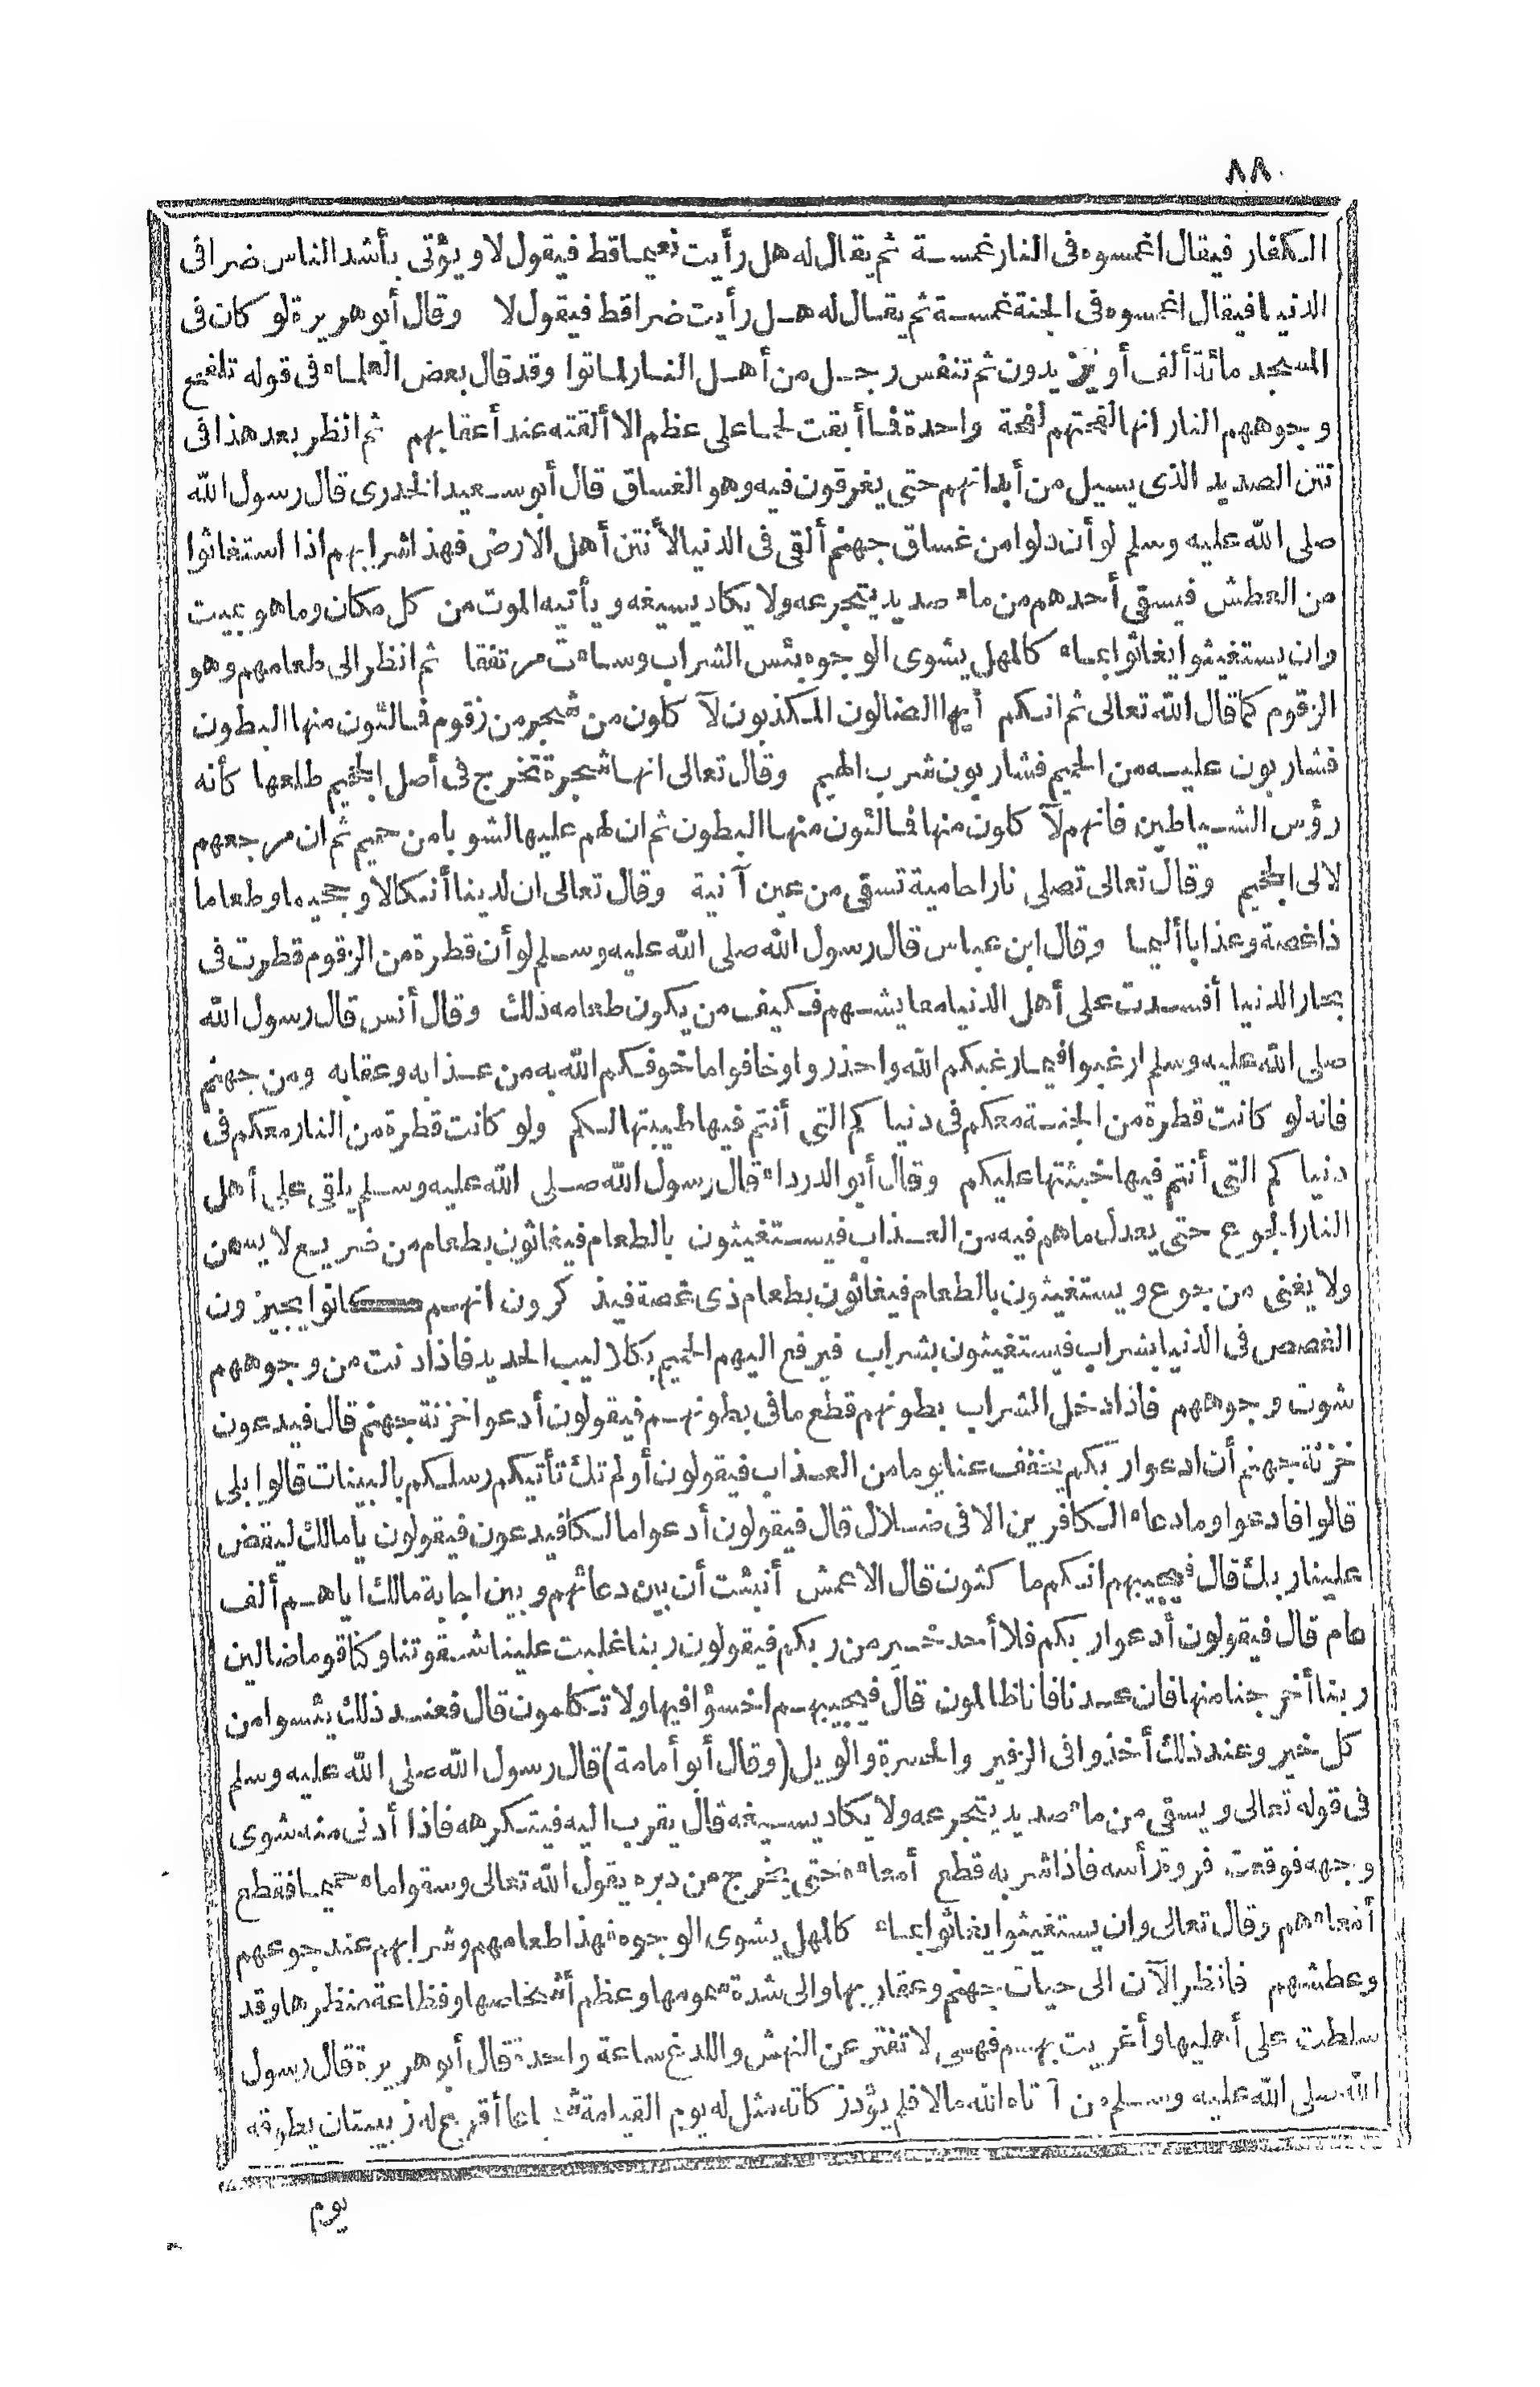 ٨٨
الكفار فيقال اغمسوه فى النار غمسة ثم يقال له هل رأيت نعيما قط فيقول لا ويؤتى بأشد الناس ضرا فى
الدنيا فيقال اغمسوه فى الجنة غمسة ثم يقال له هل رأيت ضرا قط فيقول لا وقال أبو هريرة لو كان فى
المسجد مائة ألف أو يزيدون ثم تنفس رجل من أهل النار لماتوا وقد قال بعض العلماء فى قوله تلفح
وجوههم النار انها لفحتهم لفحة واحدة فما أبقت لحما على عظم الا ألقته عند أعقابهم ثم انظر بعد هذا فى
نتن الصديد الذى يسيل من أبدانهم حتى يغرقون فيه وهو الغساق قال أبو سعيد الخدرى قال رسول الله
صلى الله عليه وسلم لو أن دلوا من غساق جهنم ألقى فى الدنيا لأنتن أهل الارض فهذا شرابهم اذا استغاثوا
من العطش فيسقى أحدهم من ماء صديد يتجرعه ولا يكاد يسيغه ويأتيه الموت من كل مكان وما هو بميت
وان يستغيثوا يغاثوا بماء كالمهل يشوى الوجوه بئس الشراب وساءت مرتفقا ثم انظر الى طعامهم وهو
الزقوم كما قال الله تعالى ثم انكم أيها الضالون المكذبون لآكلون من شجر من زقوم فمالئون منها البطون
فشاربون عليه من الحميم فشاربون شرب الهيم وقال تعالى انها شجرة تخرج فى أصل الجحيم طلعها كأنه
رؤس الشياطين فانهم لآكلون منها فمالئون منها البطون ثم ان لهم عليها لشوبا من حميم ثم ان مرجعهم
لالى الجحيم وقال تعالى تصلى نارا حامية تسقى من عين آنية وقال تعالى ان لدينا أنكالا وجحيما وطعاما
ذا غصة وعذابا أليما وقال ابن عباس قال رسول الله صلى الله عليه وسلم لو أن قطرة من الزقوم قطرت فى
بحار الدنيا أفسدت على أهل الدنيا معايشهم فكيف من يكون طعامه ذلك وقال أنس قال رسول الله
صلى الله عليه وسلم ارغبوا فيما رغبكم الله واحذروا وخافوا ما خوفكم الله به من عذابه وعقابه ومن جهنم
فانه لو كانت قطرة من الجنة معكم فى دنياكم التى أنتم فيها طيبتها لكم ولو كانت قطرة من النار معكم فى
دنياكم التى أنتم فيها خبثتها عليكم وقال أبو الدرداء قال رسول الله صلى الله عليه وسلم يلقى على أهل
النار الجوع حتى يعدل ما هم فيه من العذاب فيستغيثون بالطعام فيغاثون بطعام من ضريع لا يسمن
ولا يغنى من جوع ويستغيثون بالطعام فيغاثون بطعام ذى غصة فيذكرون انهم كانوا يجيزون
الغصص فى الدنيا بشراب فيستغيثون بشراب فيرفع اليهم الحميم بكلاليب الحديد فاذا دنت من وجوههم
شوت وجوههم فاذا دخل الشراب بطونهم قطع ما فى بطونهم فيقولون أدعوا خزنة جهنم قال فيدعون
خزنة جهنم أن ادعوا ربكم يخفف عنا يوما من العذاب فيقولون أولم تك تأتيكم رسلكم بالبينات قالوا بلى
قالوا فادعوا وما دعاء الكافرين الا فى ضلال قال فيقولون أدعوا مالكا فيدعون فيقولون يا مالك ليقض
علينا ربك قال فيجيبهم انكم ماكثون قال الاعمش أنبئت أن بين دعائهم وبين اجابة مالك اياهم ألف
عام قال فيقولون أدعوا ربكم فلا أحد خير من ربكم فيقولون ربنا غلبت علينا شقوتنا وكنا قوما ضالين
ربنا أخرجنا منها فان عدنا فانا ظالمون قال فيجيبهم اخسؤا فيها ولا تكلمون قال فعند ذلك يئسوا من
كل خير وعند ذلك أخذوا فى الزفير والحسرة والويل (وقال أبو أمامة) قال رسول الله صلى الله عليه وسلم
فى قوله تعالى ويسقى من ماء صديد يتجرعه ولا يكاد يسيغه قال يقرب اليه فيتكرهه فاذا أدنى منه شوى
وجهه فوقعت فروة رأسه فاذا شربه قطع أمعاءه حتى يخرج من دبره يقول الله تعالى وسقوا ماء حميما فقطع
أمعاءهم وقال تعالى وان يستغيثوا يغاثوا بماء كالمهل يشوى الوجوه فهذا طعامهم وشرابهم عند جوعهم
وعطشهم فانظر الآن الى حيات جهنم وعقاربها والى شدة سمومها وعظم أشخاصها وفظاعة منظرها وقد
سلطت على أهليها وأغريت بهم فهى لا تفتر عن النهش واللدغ ساعة واحدة قال أبو هريرة قال رسول
الله صلى الله عليه وسلم من آتاه الله مالا فلم يؤد زكاته مثل له يوم القيامة شجاعا أقرع له زبيبتان يطوقه
يوم